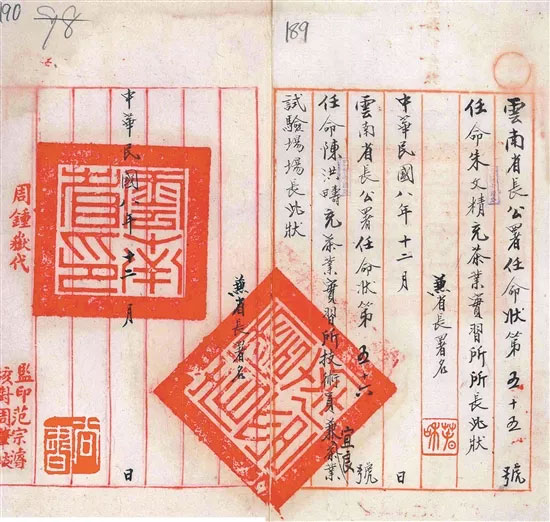 189
雲南省長公署任命狀第五十五號
任命朱文精充茶業實習所所長此狀
兼省長署名
中華民國八年十二月 日
雲南省長公署任命狀第五六號
任命陳洪疇充茶業實習所技術員兼宜良茶業
試驗場場長此狀
兼省長署名
190
98
中華民國八年十二月 日
雲南省印
周鍾嶽代
監印范宗
核對周